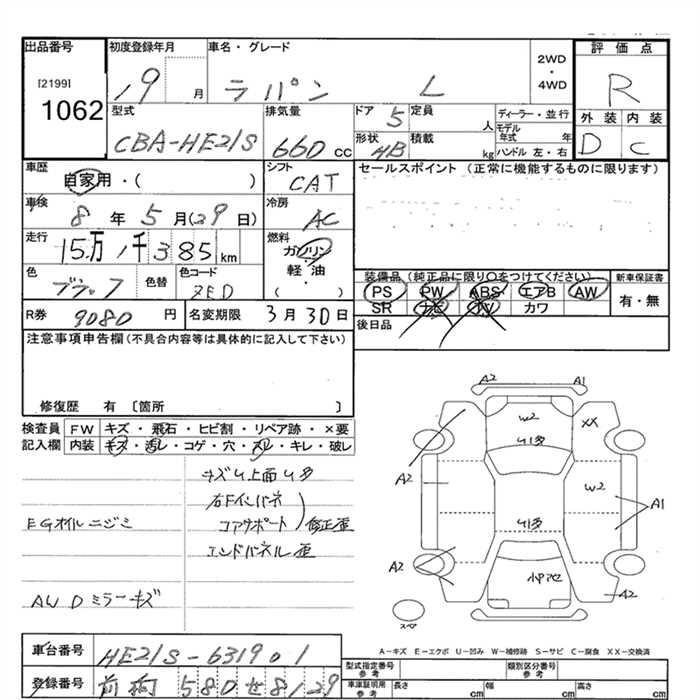 出品番号 初度登録年月 車名・グレード 2WD・4WD 評価点
[2199] 1062 19 月 ラパン L R
型式 排気量 ドア 5 定員 人 ディーラー・並行 外装 内装
CBA-HE21S 660 cc 形状 4B 積載 kg モデル年式 年 ハンドル 左・右 D C
車歴 自家用・( ) シフト CAT セールスポイント (正常に機能するものに限ります)
車検 8 年 5 月(29 日) 冷房 AC
走行 15万1千385 km 燃料 ガソリン・軽油 ( )
色 ブラック 色替 色コード ZED 装備品 (純正品に限り○をつけてください) 新車保証書
PS PW ABS エアB AW 有・無
SR ナビ TV カワ
R券 9080 円 名変期限 3 月 30 日 後日品
注意事項申告欄 (不具合内容等は具体的に記入して下さい)
修復歴 有 〔箇所 〕
検査員記入欄 FW キズ・飛石・ヒビ割・リペア跡・×要
内装 キズ・汚レ・コゲ・穴・スレ・キレ・破レ
キズU上面U多
右Fインパネ
コアサポート 修正歪
エンドパネル歪
EGオイルニジミ
AW Dミラーキズ
A2 A1
W2 XX
U多
A2 W2 A1
U多
A2 小P凹 A2
スペア
A-キズ E-エクボ U-凹み W-補修跡 S-サビ C-腐食 XX-交換済
車台番号 HE21S-631901
登録番号 580 せ 8129
型式指定番号 参考 類別区分番号 参考
車庫証明用 参考 長さ cm 幅 cm 高さ cm